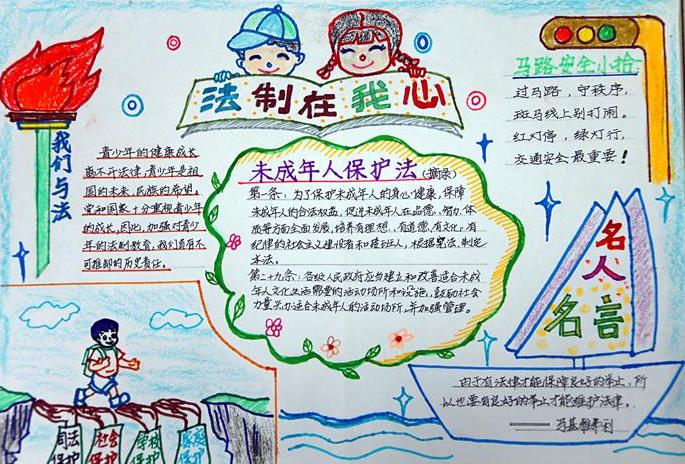 法制在我心
马路安全小抢
过马路，守秩序，
斑马线上别打闹。
红灯停，绿灯行，
交通安全最重要！
我们与法
青少年的健康成长
离不开法律，青少年是祖
国的未来，民族的希望。
党和国家十分重视青少年
的成长，因此，加强对青少
年的法制教育，我们负有不
可推卸的历史责任。
未成年人保护法（摘录）
第一条：为了保护未成年人的身心健康，保障
未成年人的合法权益，促进未成年人在品德、智力、体
质等方面全面发展，培养有理想、有道德、有文化、有
纪律的社会主义建设者和接班人，根据宪法，制定
本法。
第二十九条：各级人民政府应当建立和改善适合未成
年人文化生活需要的活动场所和设施，鼓励社会
力量兴办适合未成年人的活动场所，并加强管理。
名人
名言
由于有法律才能保障良好的举止，所
以也要有良好的举止才能维护法律。
——马基雅弗利
司法
保护
社会
保护
学校
保护
家庭
保护